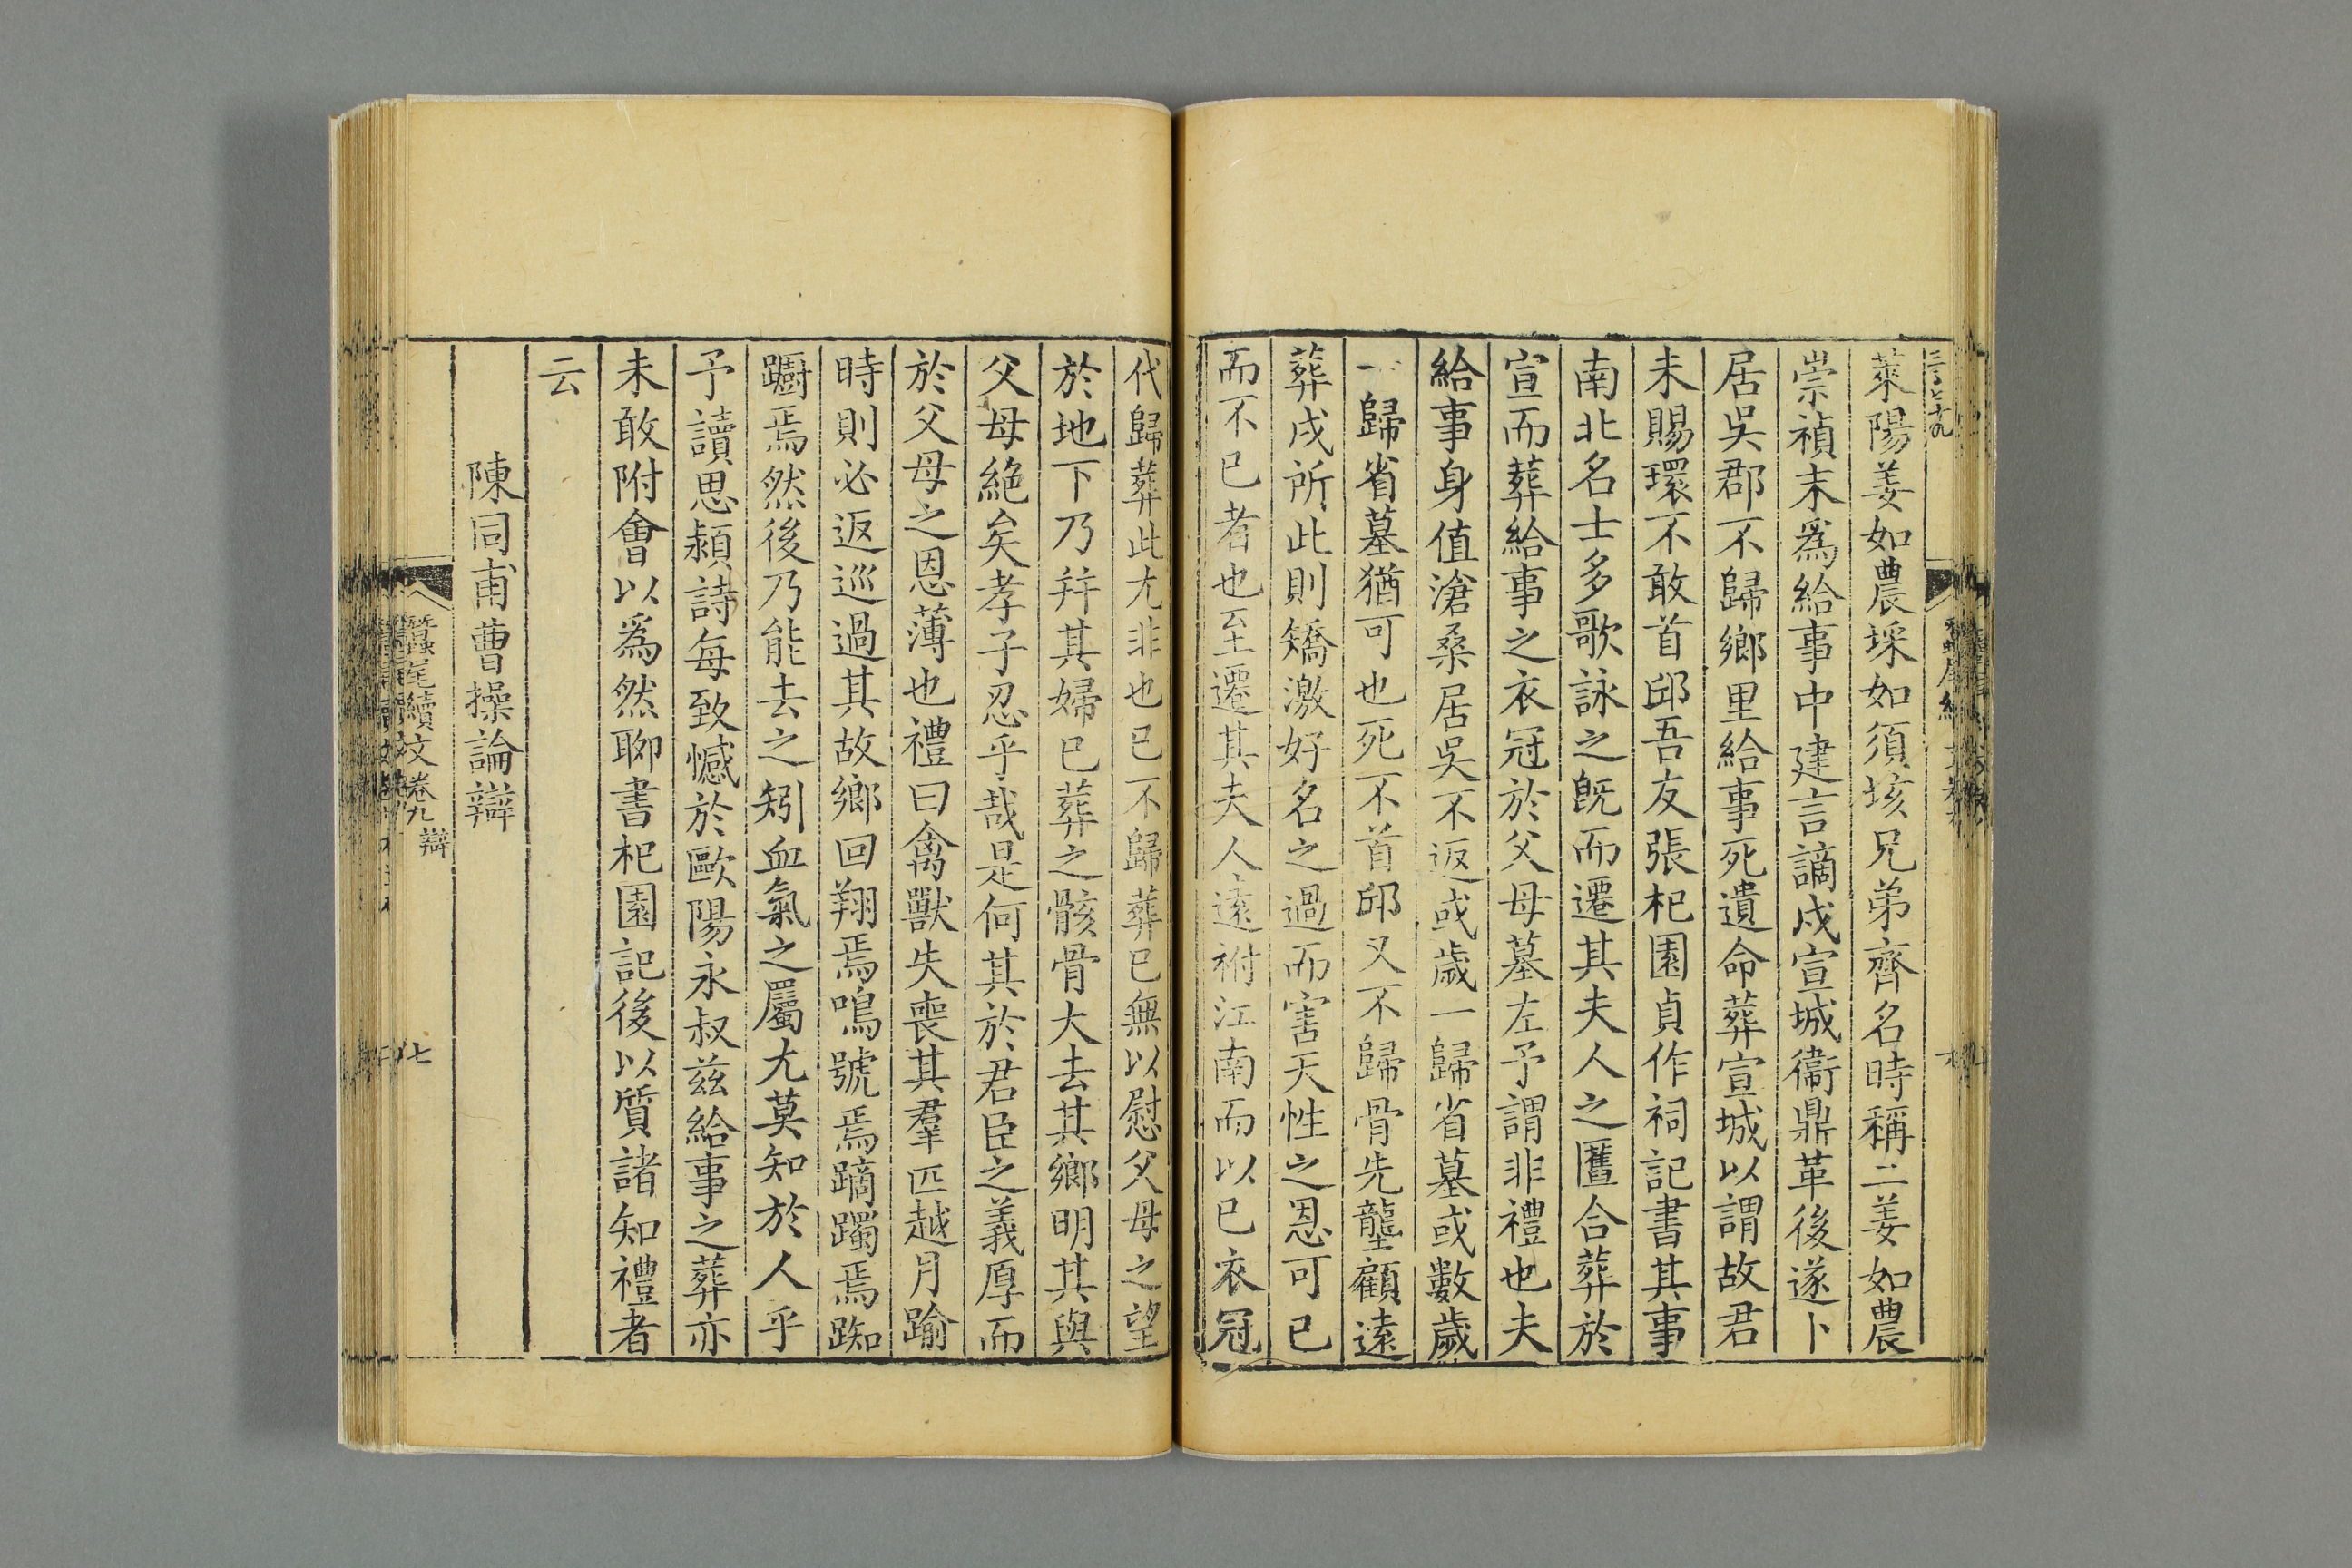 萊陽姜如農埰如須垓兄弟齊名時稱二姜如農
崇禎末爲給事中建言謫戍宣城衞鼎革後遂卜
居吳郡不歸鄉里給事死遺命葬宣城以謂故君
未賜環不敢首邱吾友張杞園貞作祠記書其事
南北名士多歌詠之旣而遷其夫人之匶合葬於
宣而葬給事之衣冠於父母墓左予謂非禮也夫
給事身值滄桑居吳不返或歲一歸省墓或數歲
一歸省墓猶可也死不首邱又不歸骨先壟顧遠
葬戍所此則矯激好名之過而害天性之恩可已
而不已者也至遷其夫人遠祔江南而以已衣冠
代歸葬此尤非也已不歸葬已無以慰父母之望
於地下乃幷其婦已葬之骸骨大去其鄉明其與
父母絶矣孝子忍乎哉是何其於君臣之義厚而
於父母之恩薄也禮曰禽獸失喪其羣匹越月踰
時則必返巡過其故鄉回翔焉鳴號焉蹢躅焉踟
躕焉然後乃能去之矧血氣之屬尤莫知於人乎
予讀思潁詩每致憾於歐陽永叔兹給事之葬亦
未敢附會以爲然聊書杞園記後以質諸知禮者
云
陳同甫曹操論辯
蠶尾續文卷九 辯
七